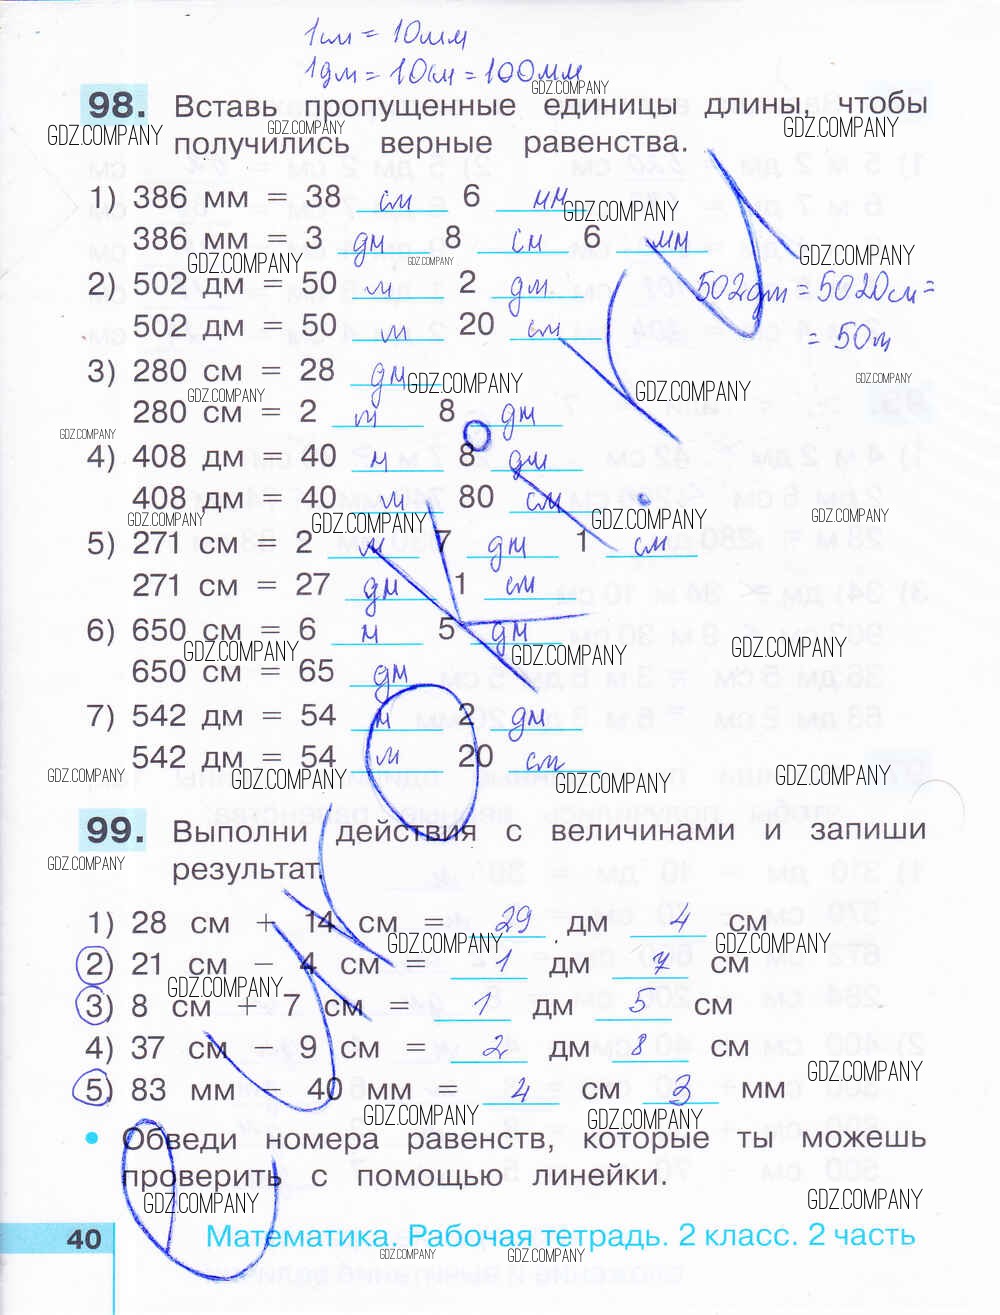 1см = 10мм
1дм = 10см = 100мм
98. Вставь пропущенные единицы длины, чтобы
получились верные равенства.
1) 386 мм = 38 см 6 мм
386 мм = 3 дм 8 см 6 мм
2) 502 дм = 50 м 2 дм
502дм = 5020см =
502 дм = 50 м 20 см
= 50м
3) 280 см = 28 дм
280 см = 2 м 8 дм
4) 408 дм = 40 м 8 дм
408 дм = 40 м 80 см
5) 271 см = 2 м 7 дм 1 см
271 см = 27 дм 1 см
6) 650 см = 6 м 5 дм
650 см = 65 дм
7) 542 дм = 54 м 2 дм
542 дм = 54 м 20 см
99. Выполни действия с величинами и запиши
результат.
1) 28 см + 14 см = 29 дм 4 см
2) 21 см - 4 см = 1 дм 7 см
3) 8 см + 7 см = 1 дм 5 см
4) 37 см - 9 см = 2 дм 8 см
5) 83 мм - 40 мм = 4 см 3 мм
• Обведи номера равенств, которые ты можешь
проверить с помощью линейки.
40 Математика. Рабочая тетрадь. 2 класс. 2 часть
GDZ.COMPANY